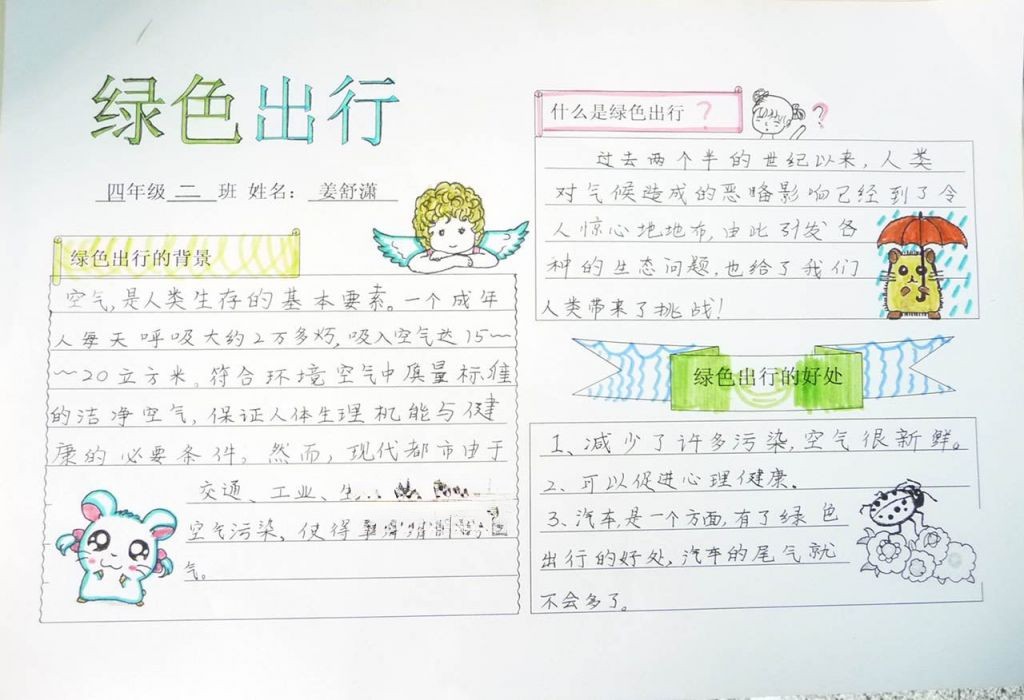 绿色出行
四年级 二 班 姓名： 姜舒潇
绿色出行的背景
空气，是人类生存的基本要素。一个成年
人每天呼吸大约2万多次，吸入空气达15~
~20立方米。符合环境空气中质量标准
的洁净空气，保证人体生理机能与健
康的必要条件。然而，现代都市由于
交通、工业、生
空气污染，使得
气。
什么是绿色出行？
？
过去两个半的世纪以来，人类
对气候造成的恶略影响已经到了令
人惊心地地布，由此引发各
种的生态问题，也给了我们
人类带来了挑战！
绿色出行的好处
1、减少了许多污染，空气很新鲜。
2、可以促进心理健康。
3、汽车，是一个方面，有了绿色
出行的好处，汽车的尾气就
不会多了。